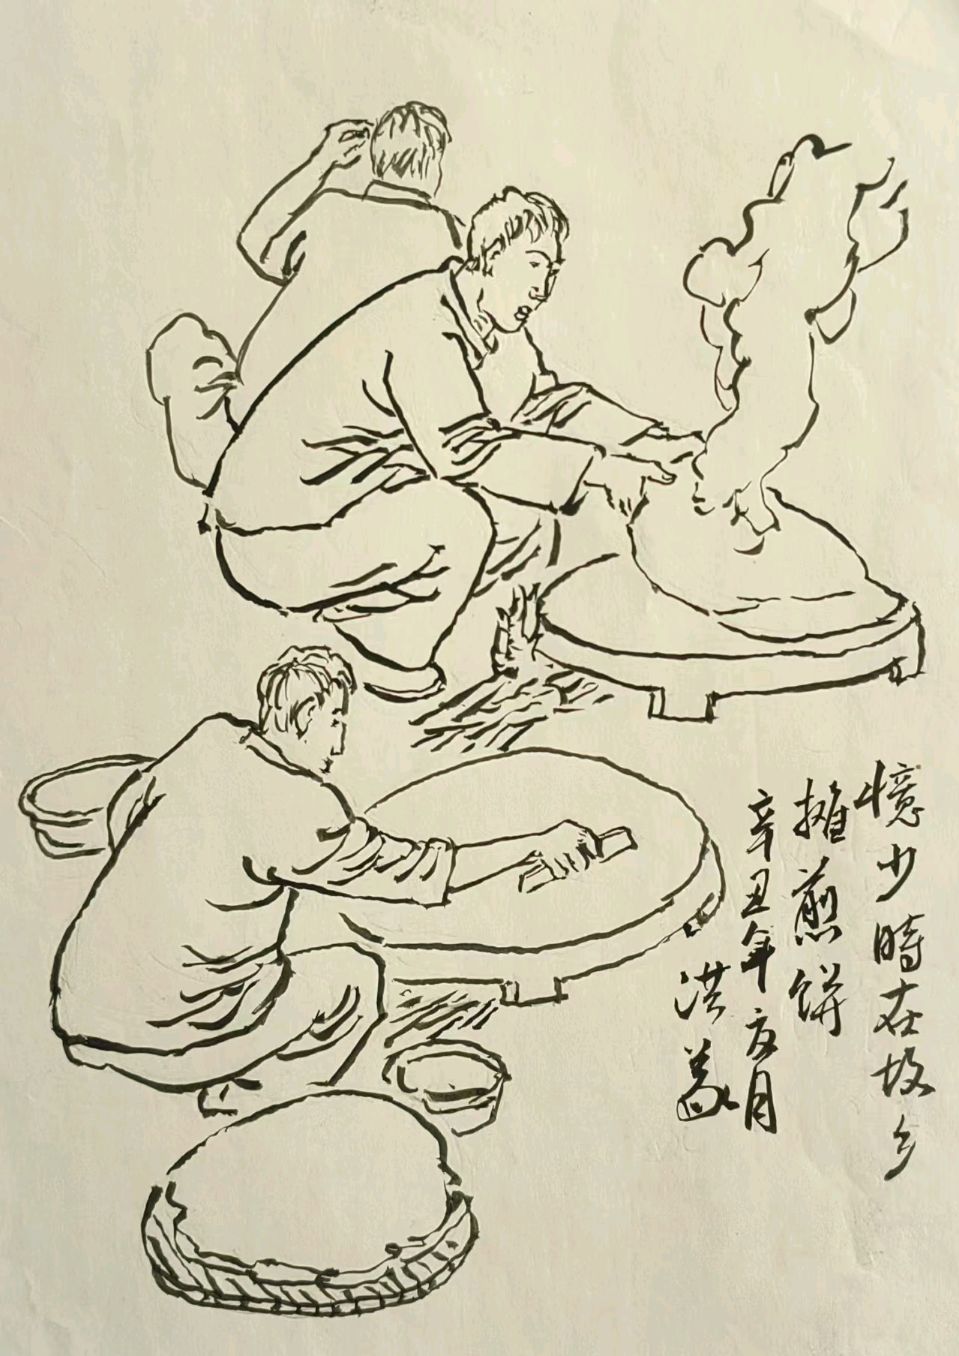 憶少時在故乡
摊煎餅
辛丑年月
洪